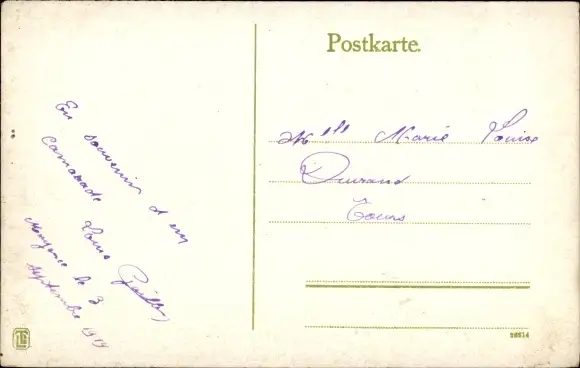 Postkarte.
En souvenir d'un
camarade
Louis
Mayence le 3
Septembre 1919
Mlle Marie Louise
Durand
Tours